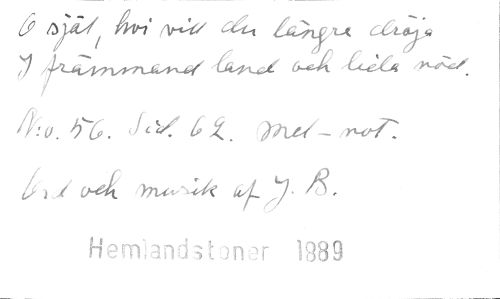 O själ, hvi vill du längre dröja
I främmand land och lida nöd.
N:o. 56. Sid. 62. mel-not.
Ord och musik af J. B.
Hemlandstoner 1889